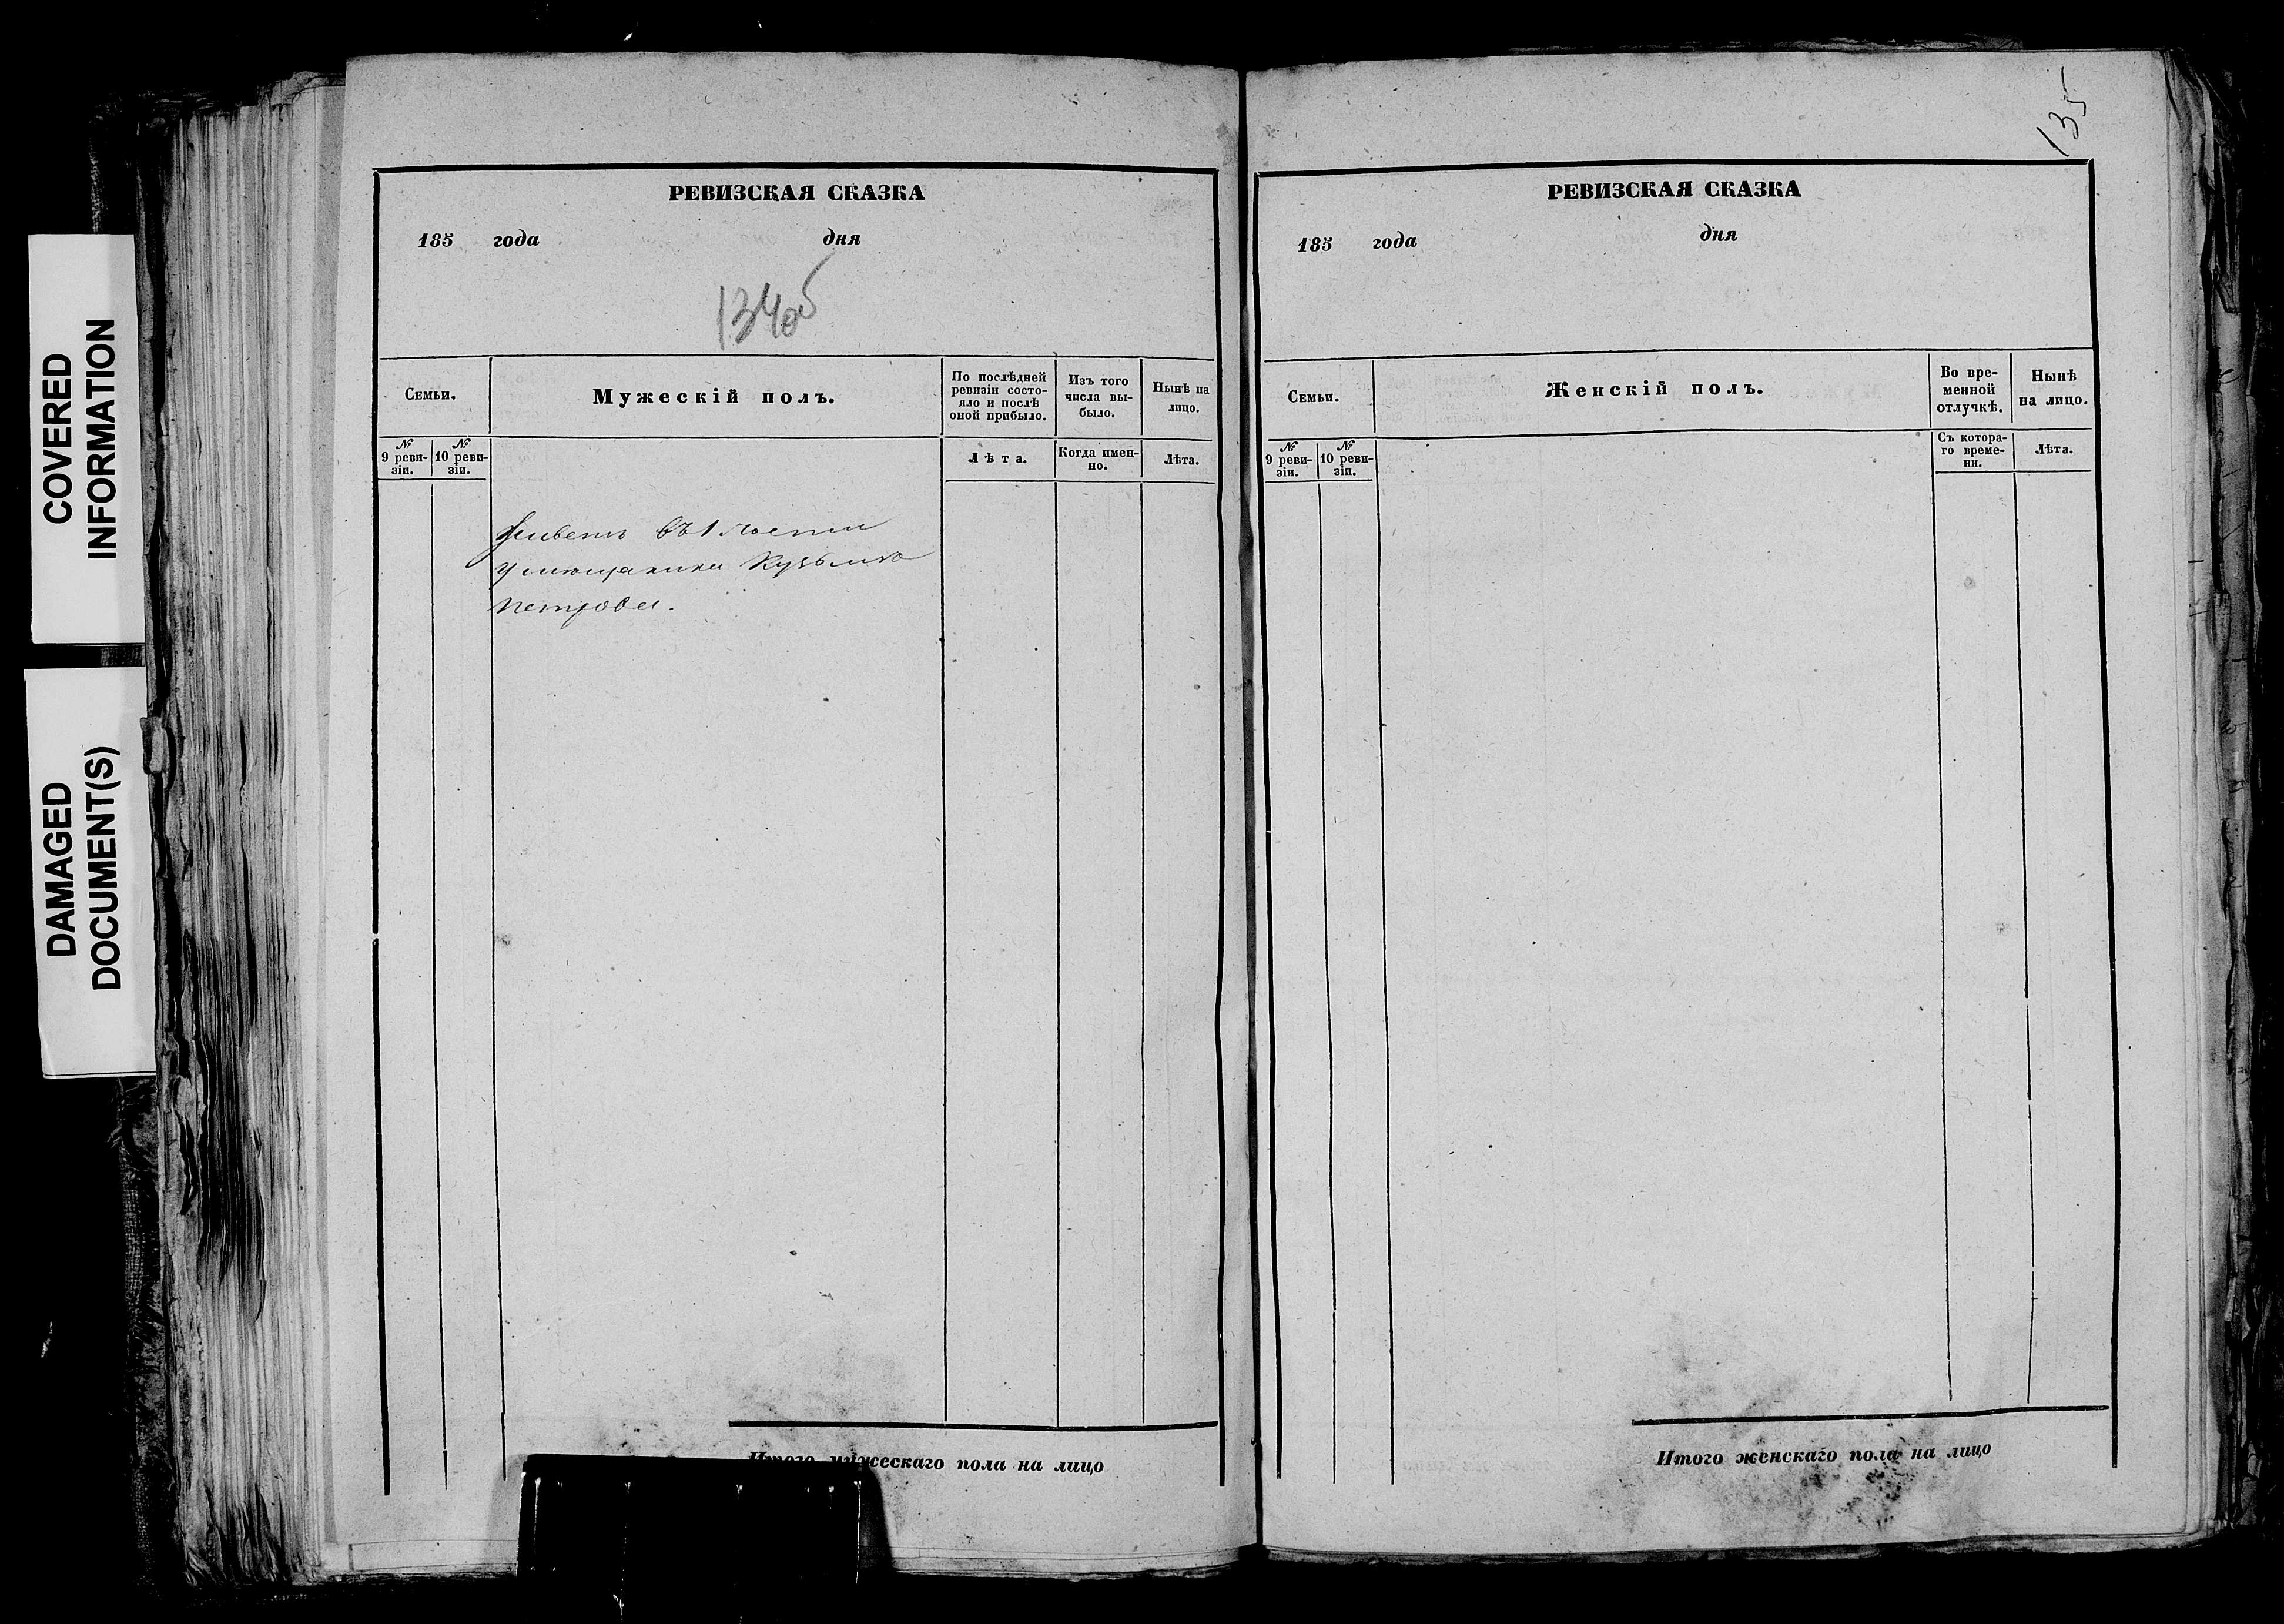 COVERED
INFORMATION
DAMAGED
DOCUMENT(S)
РЕВИЗСКАЯ СКАЗКА
185 года дня
134об
Семьи.
Мужескій полъ.
По послѣдней
ревизіи состо-
яло и послѣ
оной прибыло.
Изъ того
числа вы-
было.
Нынѣ на
лицо.
№
9 реви-
зіи.
№
10 реви-
зіи.
Лѣта.
Когда имен-
но.
Лѣта.
Живетъ въ 1 части
у мѣщанина Кузьмы
Петрова.
Итого мужескаго пола на лицо
135
РЕВИЗСКАЯ СКАЗКА
185 года дня
Семьи.
Женскій полъ.
Во вре-
менной
отлучкѣ.
Нынѣ
на лицо.
№
9 реви-
зіи.
№
10 реви-
зіи.
Съ котора-
го време-
ни.
Лѣта.
Итого женскаго пола на лицо